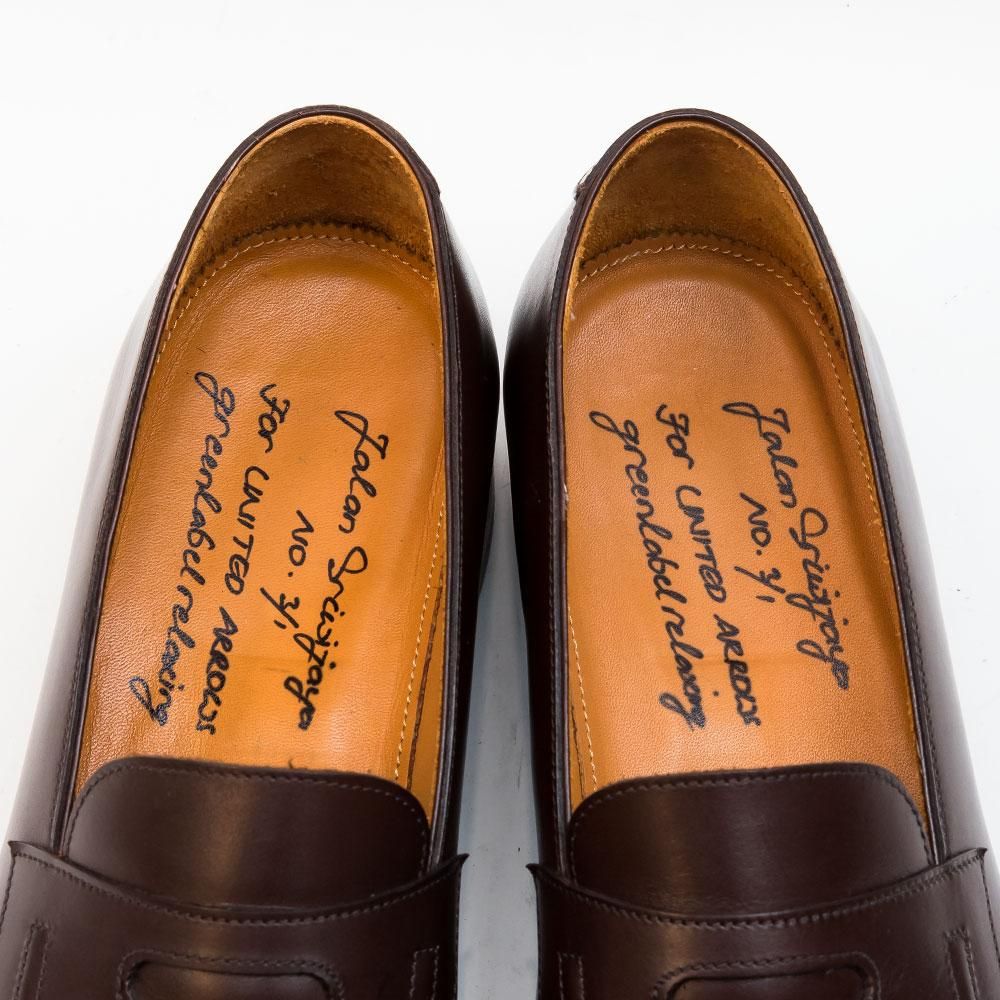 Jalan Sriwijaya
NO. 3/1
For UNITED ARROWS
green label relaxing
Jalan Sriwijaya
NO. 3/1
For UNITED ARROWS
green label relaxing